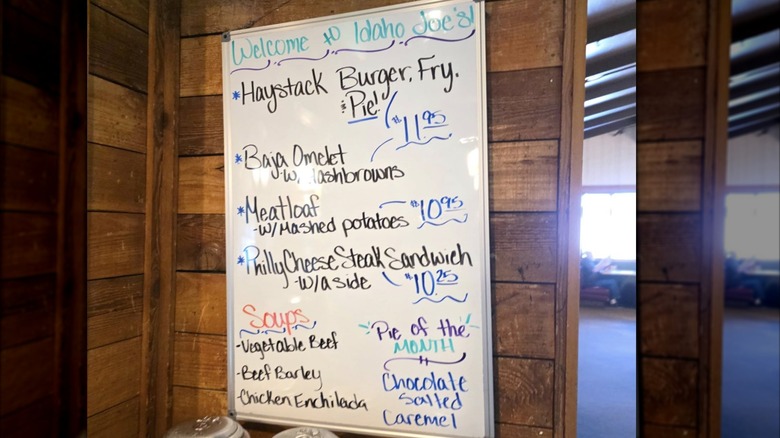 Welcome to Idaho Joe's!
*Haystack Burger, Fry.
& Pie!
$11.95
*Baja Omelet
-w/ Hashbrowns
*Meatloaf
-w/Mashed potatoes
$10.95
*Philly Cheese Steak Sandwich
-w/a side
$10.25
Soups
-Vegetable Beef
-Beef Barley
-Chicken Enchilada
Pie of the
MONTH
Chocolate
Salted
Caramel